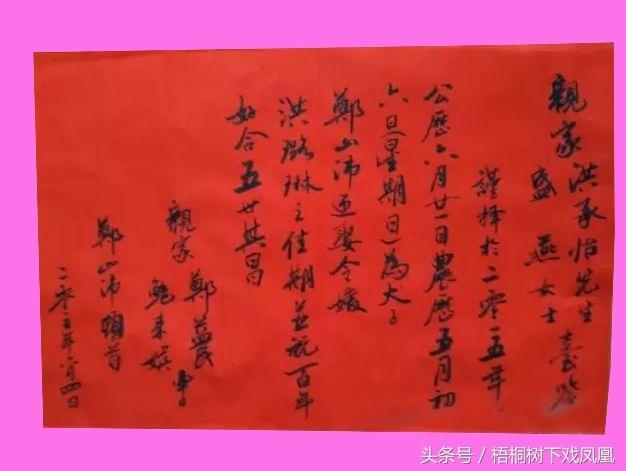 親家洪承怡先生
盛燕女士臺鑒
謹择於二零一五年
公歷六月廿一日農歷五月初
六日星期日為大子
鄭山沛迎娶令嫒
洪璐琳之佳期並祝百年
好合五世其昌
親家鄭益民
鮑来
鄭山沛頓首
二零一五年六月四日
头条号／梧桐树下戏凤凰